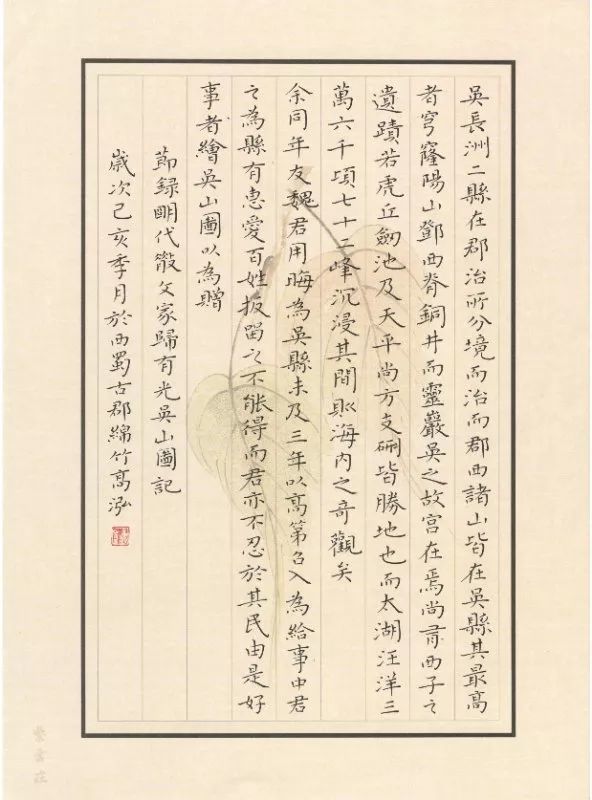 吳長洲二縣在郡治所分境而治而郡西諸山皆在吳縣其最高
者穹窿陽山鄧西脊銅井而靈巖吳之故宮在焉尚有西子之
遺蹟若虎丘劒池及天平尚方支硎皆勝地也而太湖汪洋三
萬六千頃七十二峰沉浸其間則海內之奇觀矣
余同年友魏君用晦為吳縣未及三年以高第召入為給事中君
之為縣有惠愛百姓扳留之不能得而君亦不忍於其民由是好
事者繪吳山圖以為贈
節録明代散文家歸有光吳山圖記
歲次己亥季月於西蜀古郡綿竹高泓